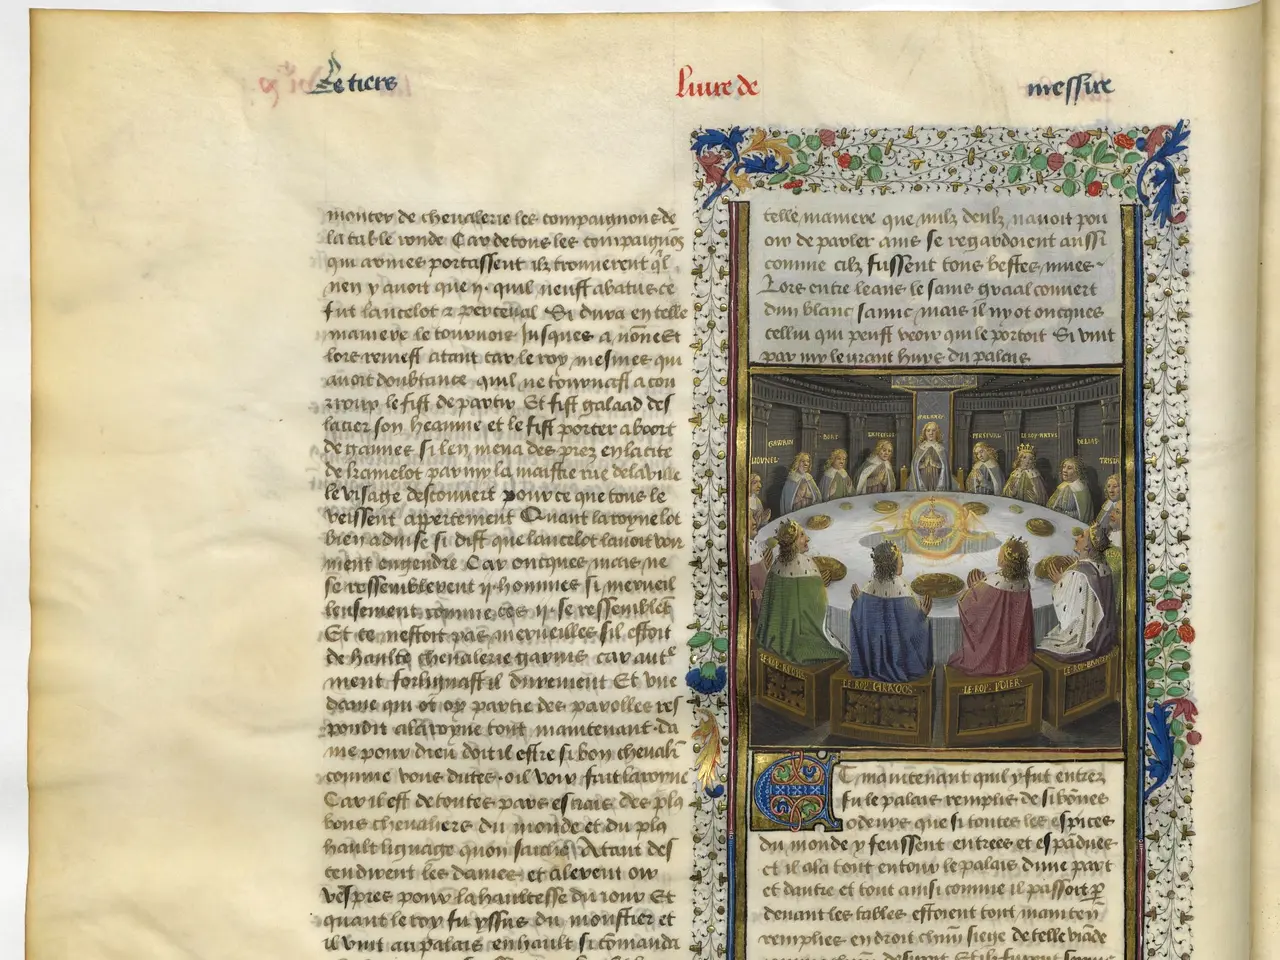 Le tiers
liure de
messire
monter de cheualerie les compaignons de
la table ronde Car de tous les compaignõs
qui armes portassent ilz trouuerent q̃l
nen y auoit que ij. quil neust abatus ce
fut lancelot ⁊ perceual Si dura en telle
maniere le tournoy jusques a nõne Et
lors remest atant car le roy mesmes qui
auoit doubtance quil ne tournast a cou
rroux le fist departir Et fist galaad des
lacier son heaume et le fist porter a boort
de
si len mena des piez en la cite
de kamelot par my la maistre rue de la ville
le visage descouuert pour ce que tous le
veissent appertement Quant la royne lot
bien aduise si dist que lancelot lauoit vrai
ment engendre Car oncques mais ne
se ressemblerent ij. hommes si merueil
leusement comme ces ij. se ressemblẽt
Et ce nestoit pas merueilles sil estoit
de haulte cheualerie garnis car aut̃
ment forlignast il durement Et vne
dame qui ot oy partie des parolles res
pondit a la royne tout maintenant da
me pour dieu doit il estre si bon cheualr̃
comme vous dittes. oil voir fait la royne
Car il est de toutes pars estrais des pl9
bons cheualiers du monde et du pl9
hault lignage quon sache Atant des
cendirent les dames et alerent oir
vespres pour la haultesse du iour Et
quant le roy fu yssus du moustier et
il vint au palais en hault si cõmanda
telle maniere que nulz deulz nauoit pou
oir de parler ains se regardoient aussi
comme cilz fussent tous bestes mues.
Lors entre leans le saint graal couuert
dun blanc samit mais il ny ot oncques
cellui qui peust veoir qui le portoit Si vint
par my le grant huys du palais
GALAAD
GAUUAIN
BORT
LANCELOT
PERCEVAL
LE ROY ARTUS
HELIAS
LIONNEL
TRISTA
LE ROY
LE ROY CARADOS
LE ROY YDIER
LE ROY
Et maintenant quil y fut entrez
fu le palais remplis de si bõnes
odeurs que si toutes les espices
du monde y feussent entrees et espadues
et il ala tout entour le palais dune part
et dautre et tout ainsi comme il passoit p
deuant les tables estoient tout mainten
remplies endroit chũn siege de telle viãde